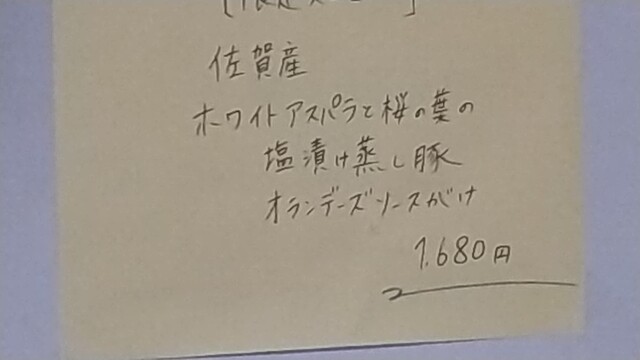 佐賀産
ホワイトアスパラと桜の葉の
塩漬け蒸し豚
オランデーズソースがけ
1.680円